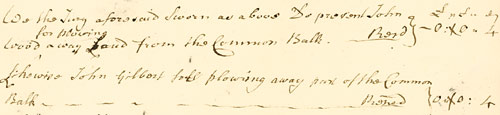 We the Jury aforesaid Sworn as above Do present John
for plowing
Wood away Land from the Common Balk. 0:0:4
likewise John Gilbert for plowing away part of the Common
Balk 0:0:4